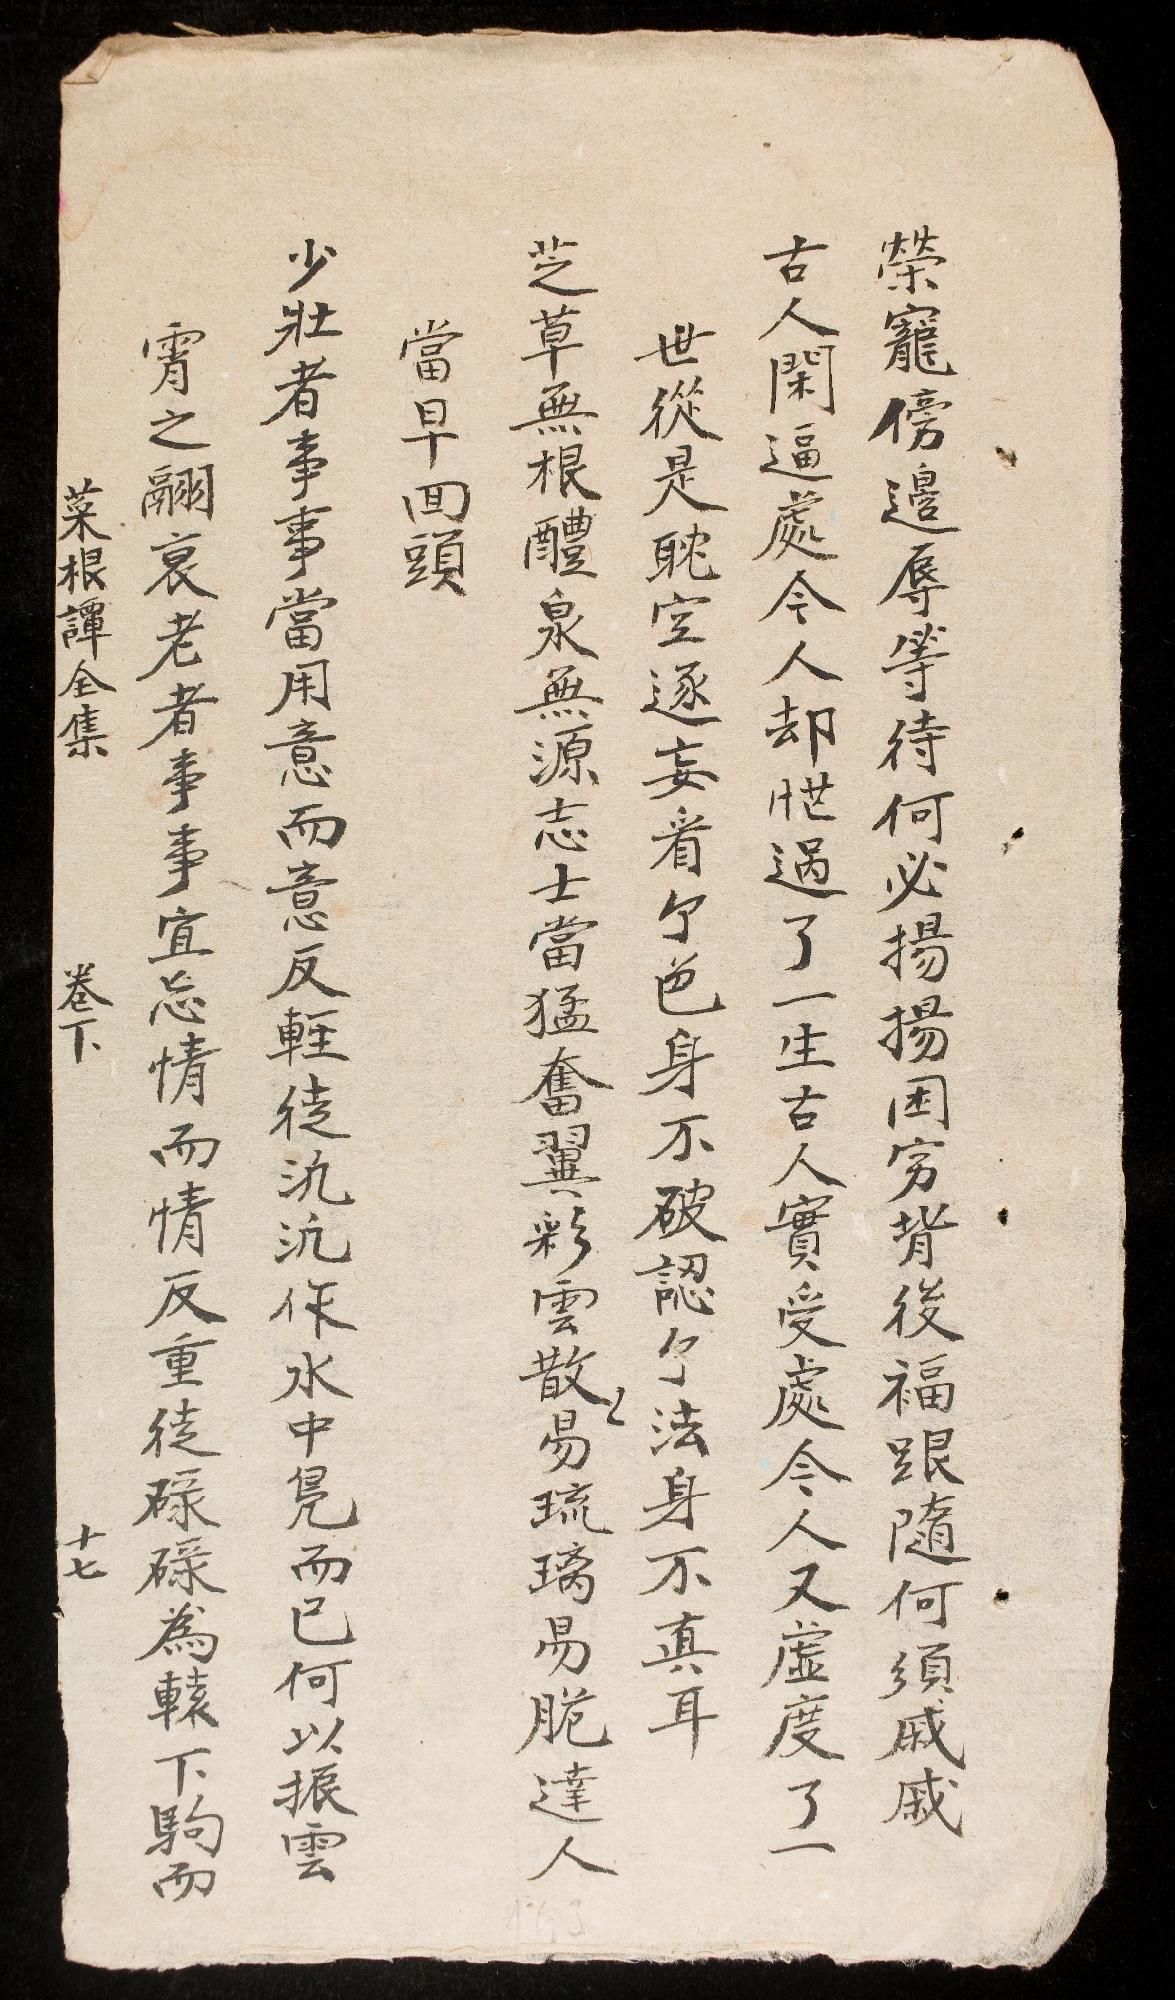 榮寵傍邊辱等待何必揚揚困穷背後福跟隨何須戚戚
古人閑適處今人却忙過了一生古人實受處今人又虛度了一
世從是耽空逐妄看个色身不破認个法身不真耳
芝草無根醴泉無源志士當猛奮翼彩雲散易琉璃易脆達人
當早回頭
少壯者事事當用意而意反輕徒汎汎作水中鳧而已何以振雲
霄之翮衰老者事事宜忘情而情反重徒碌碌為轅下駒而
菜根譚全集 卷下 十七